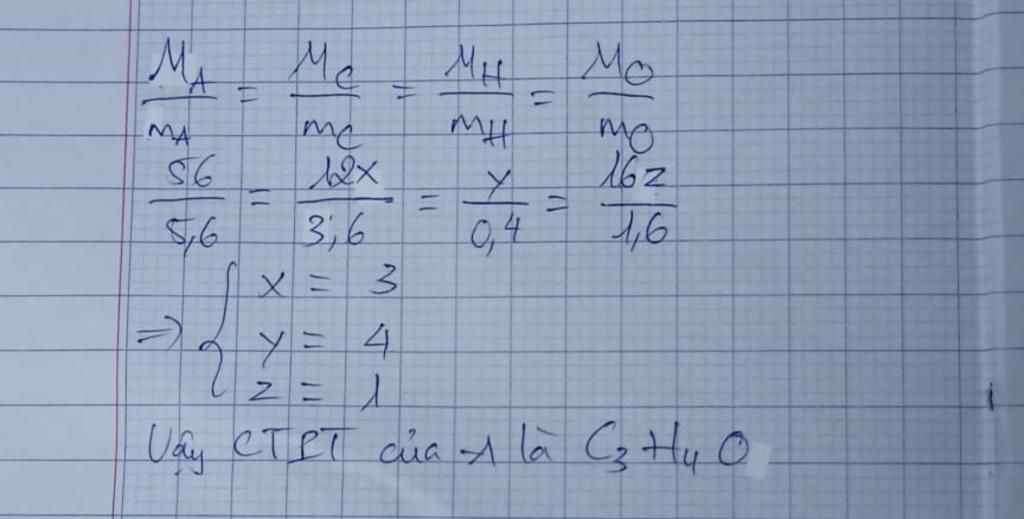 M_A/m_A = M_C/m_C = M_H/m_H = M_O/m_O
56/5,6 = 12x/3,6 = y/0,4 = 16z/1,6
⇒ { x = 3
y = 4
z = 1
Vậy CTPT của A là C₃H₄O